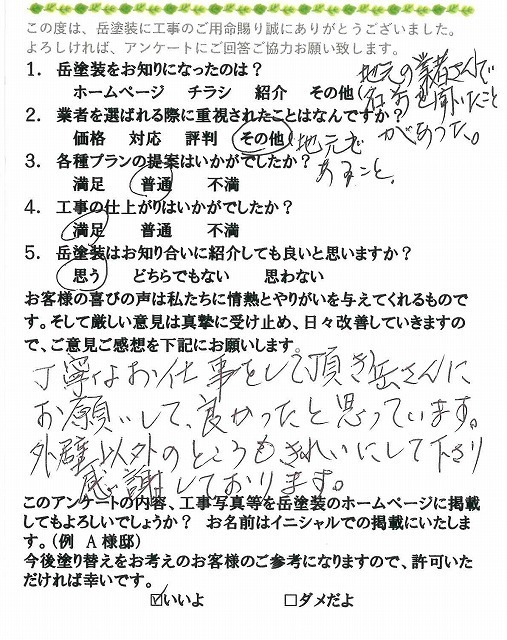 この度は、岳塗装に工事のご用命賜り誠にありがとうございました。
よろしければ、アンケートにご回答ご協力お願い致します。
1. 岳塗装をお知りになったのは？
ホームページ チラシ 紹介 その他(地元の業者さんで
名前を聞いたこと
があった。
2. 業者を選ばれる際に重視されたことはなんですか？
価格 対応 評判 その他(地元で
あること。
3. 各種プランの提案はいかがでしたか？
満足 普通 不満
4. 工事の仕上がりはいかがでしたか？
満足 普通 不満
5. 岳塗装はお知り合いに紹介しても良いと思いますか？
思う どちらでもない 思わない
お客様の喜びの声は私たちに情熱とやりがいを与えてくれるもので
す。そして厳しい意見は真摯に受け止め、日々改善していきますの
で、ご意見ご感想を下記にお願いします。
丁寧なお仕事をして頂き岳さんに
お願いして、良かったと思っています。
外壁以外のところもきれいにして下さり
感謝しております。
このアンケートの内容、工事写真等を岳塗装のホームページに掲載
してもよろしいでしょうか？ お名前はイニシャルでの掲載にいたしま
す。(例 A様邸)
今後塗り替えをお考えのお客様のご参考になりますので、許可いた
だければ幸いです。
☑いいよ □ダメだよ